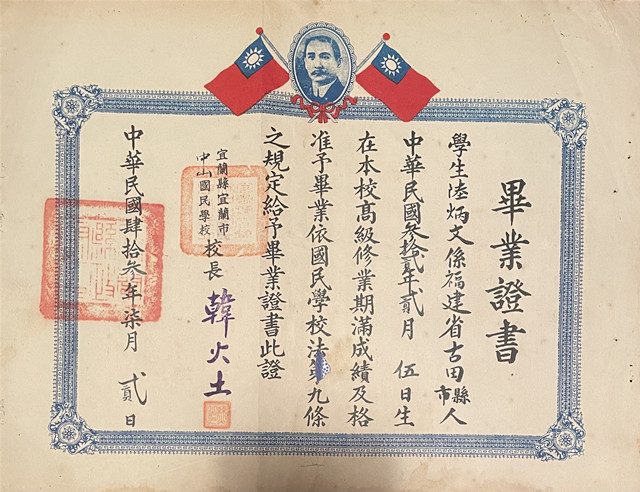 畢業證書
學生陸炳文係福建省古田縣市人
中華民國叁拾貳年貳月伍日生
在本校高級修業期滿成績及格
准予畢業依國民學校法第九條
之規定給予畢業證書此證
宜蘭縣宜蘭市
中山國民學校
校長 韓火土
中華民國肆拾叁年柒月貳日